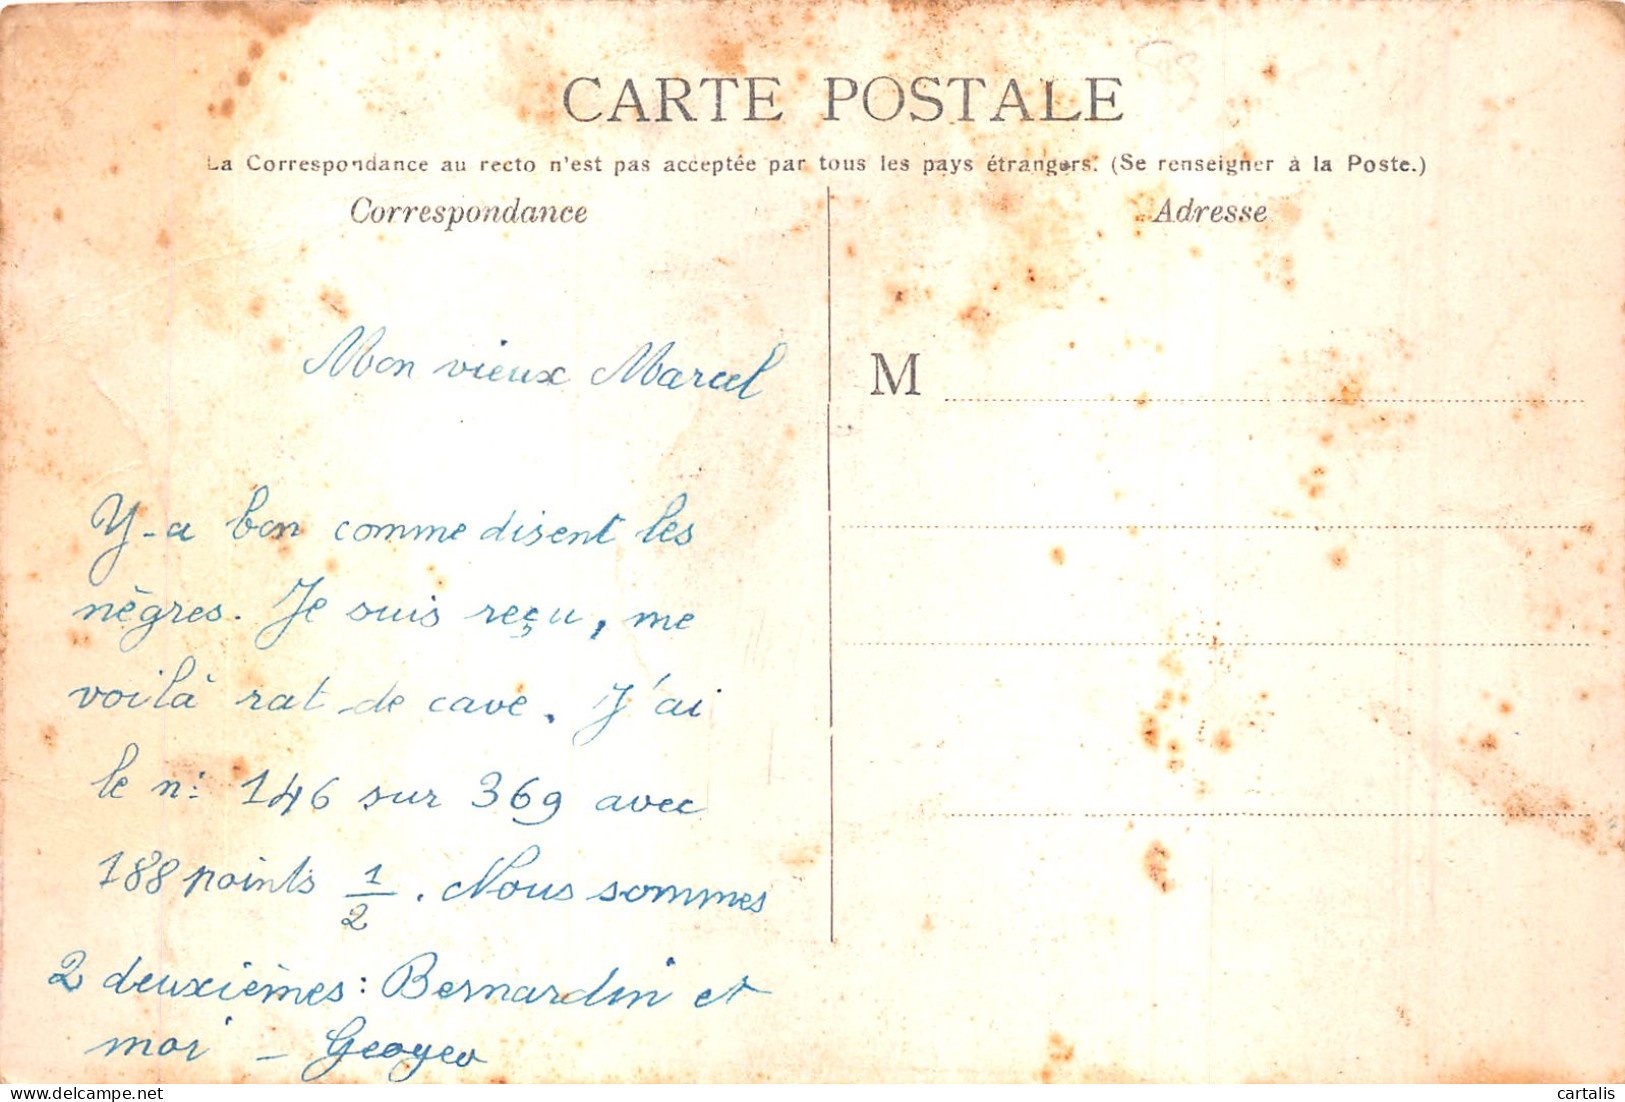 CARTE POSTALE
La Correspondance au recto n'est pas acceptée par tous les pays étrangers. (Se renseigner à la Poste.)
Correspondance
Adresse
M
Mon vieux Marcel
Y-a bon comme disent les
nègres. Je suis reçu, me
voilà rat de cave. J'ai
le n: 146 sur 369 avec
188 points 1/2. Nous sommes
2 deuxièmes: Bernardin et
moi -
cartalis